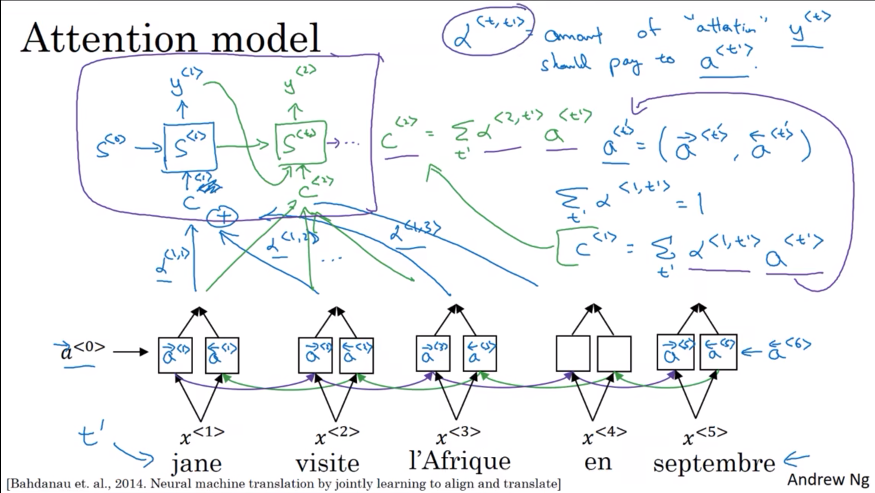 Attention model
α<t,t'> = amount of "attention" y<t>
should pay to a<t'>.
y<1> y<2>
S<0> → S<1> → S<2> → ...
c<1> c<2>
c<2> = Σt' α<2,t'> a<t'>
a<t'> = (→a<t'>, ←a<t'>)
Σt' α<1,t'> = 1
c<1> = Σt' α<1,t'> a<t'>
+
α<1,1> α<1,2> ... α<1,3>
→a<0> → →a<1> ←a<1> →a<5> ←a<5> ← ←a<6>
x<1> x<2> x<3> x<4> x<5>
t'
jane visite l'Afrique en septembre
[Bahdanau et. al., 2014. Neural machine translation by jointly learning to align and translate]
Andrew Ng